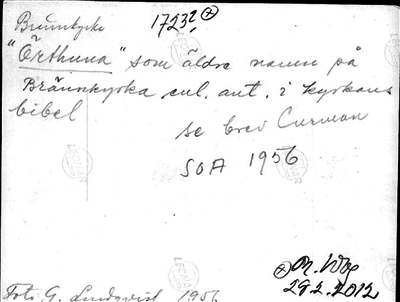 Brännkyrka 17232
"Örthuna" som äldre namn på
Brännkyrka enl. ant. i kyrkans
bibel
se brev Curman
SOA 1956
Foto G. Lundqvist 1956
29.2.2012